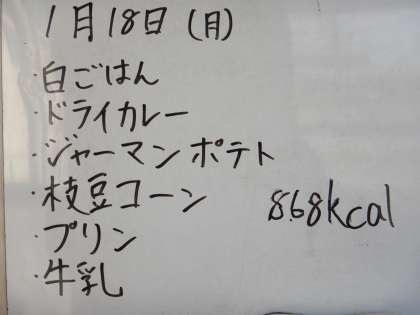 1月18日(月)
・白ごはん
・ドライカレー
・ジャーマンポテト
・枝豆コーン
868kcal
・プリン
・牛乳